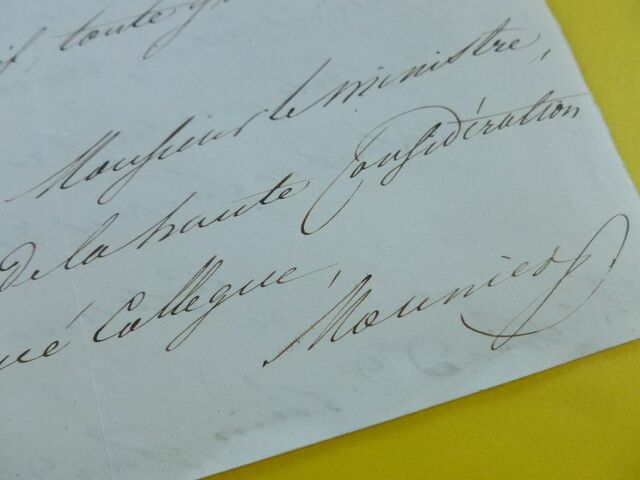 toute
Monsieur le ministre,
De la haute Considération
Collegue,
Mounier